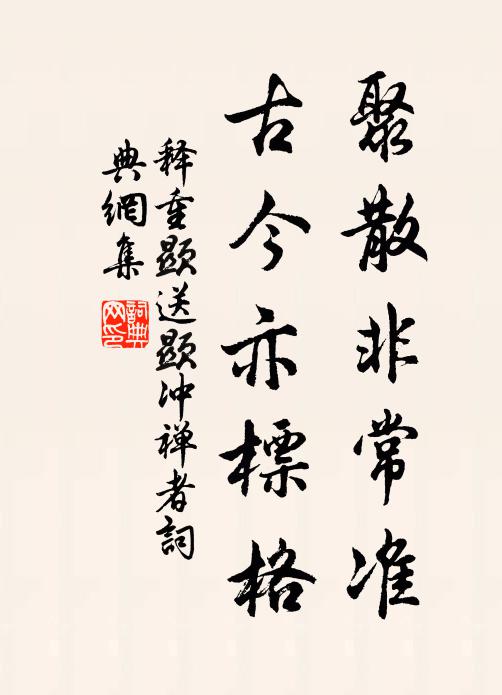 聚散非常准
古今亦標格
释重顯送顯冲禅者詞
典網集
詞典网印